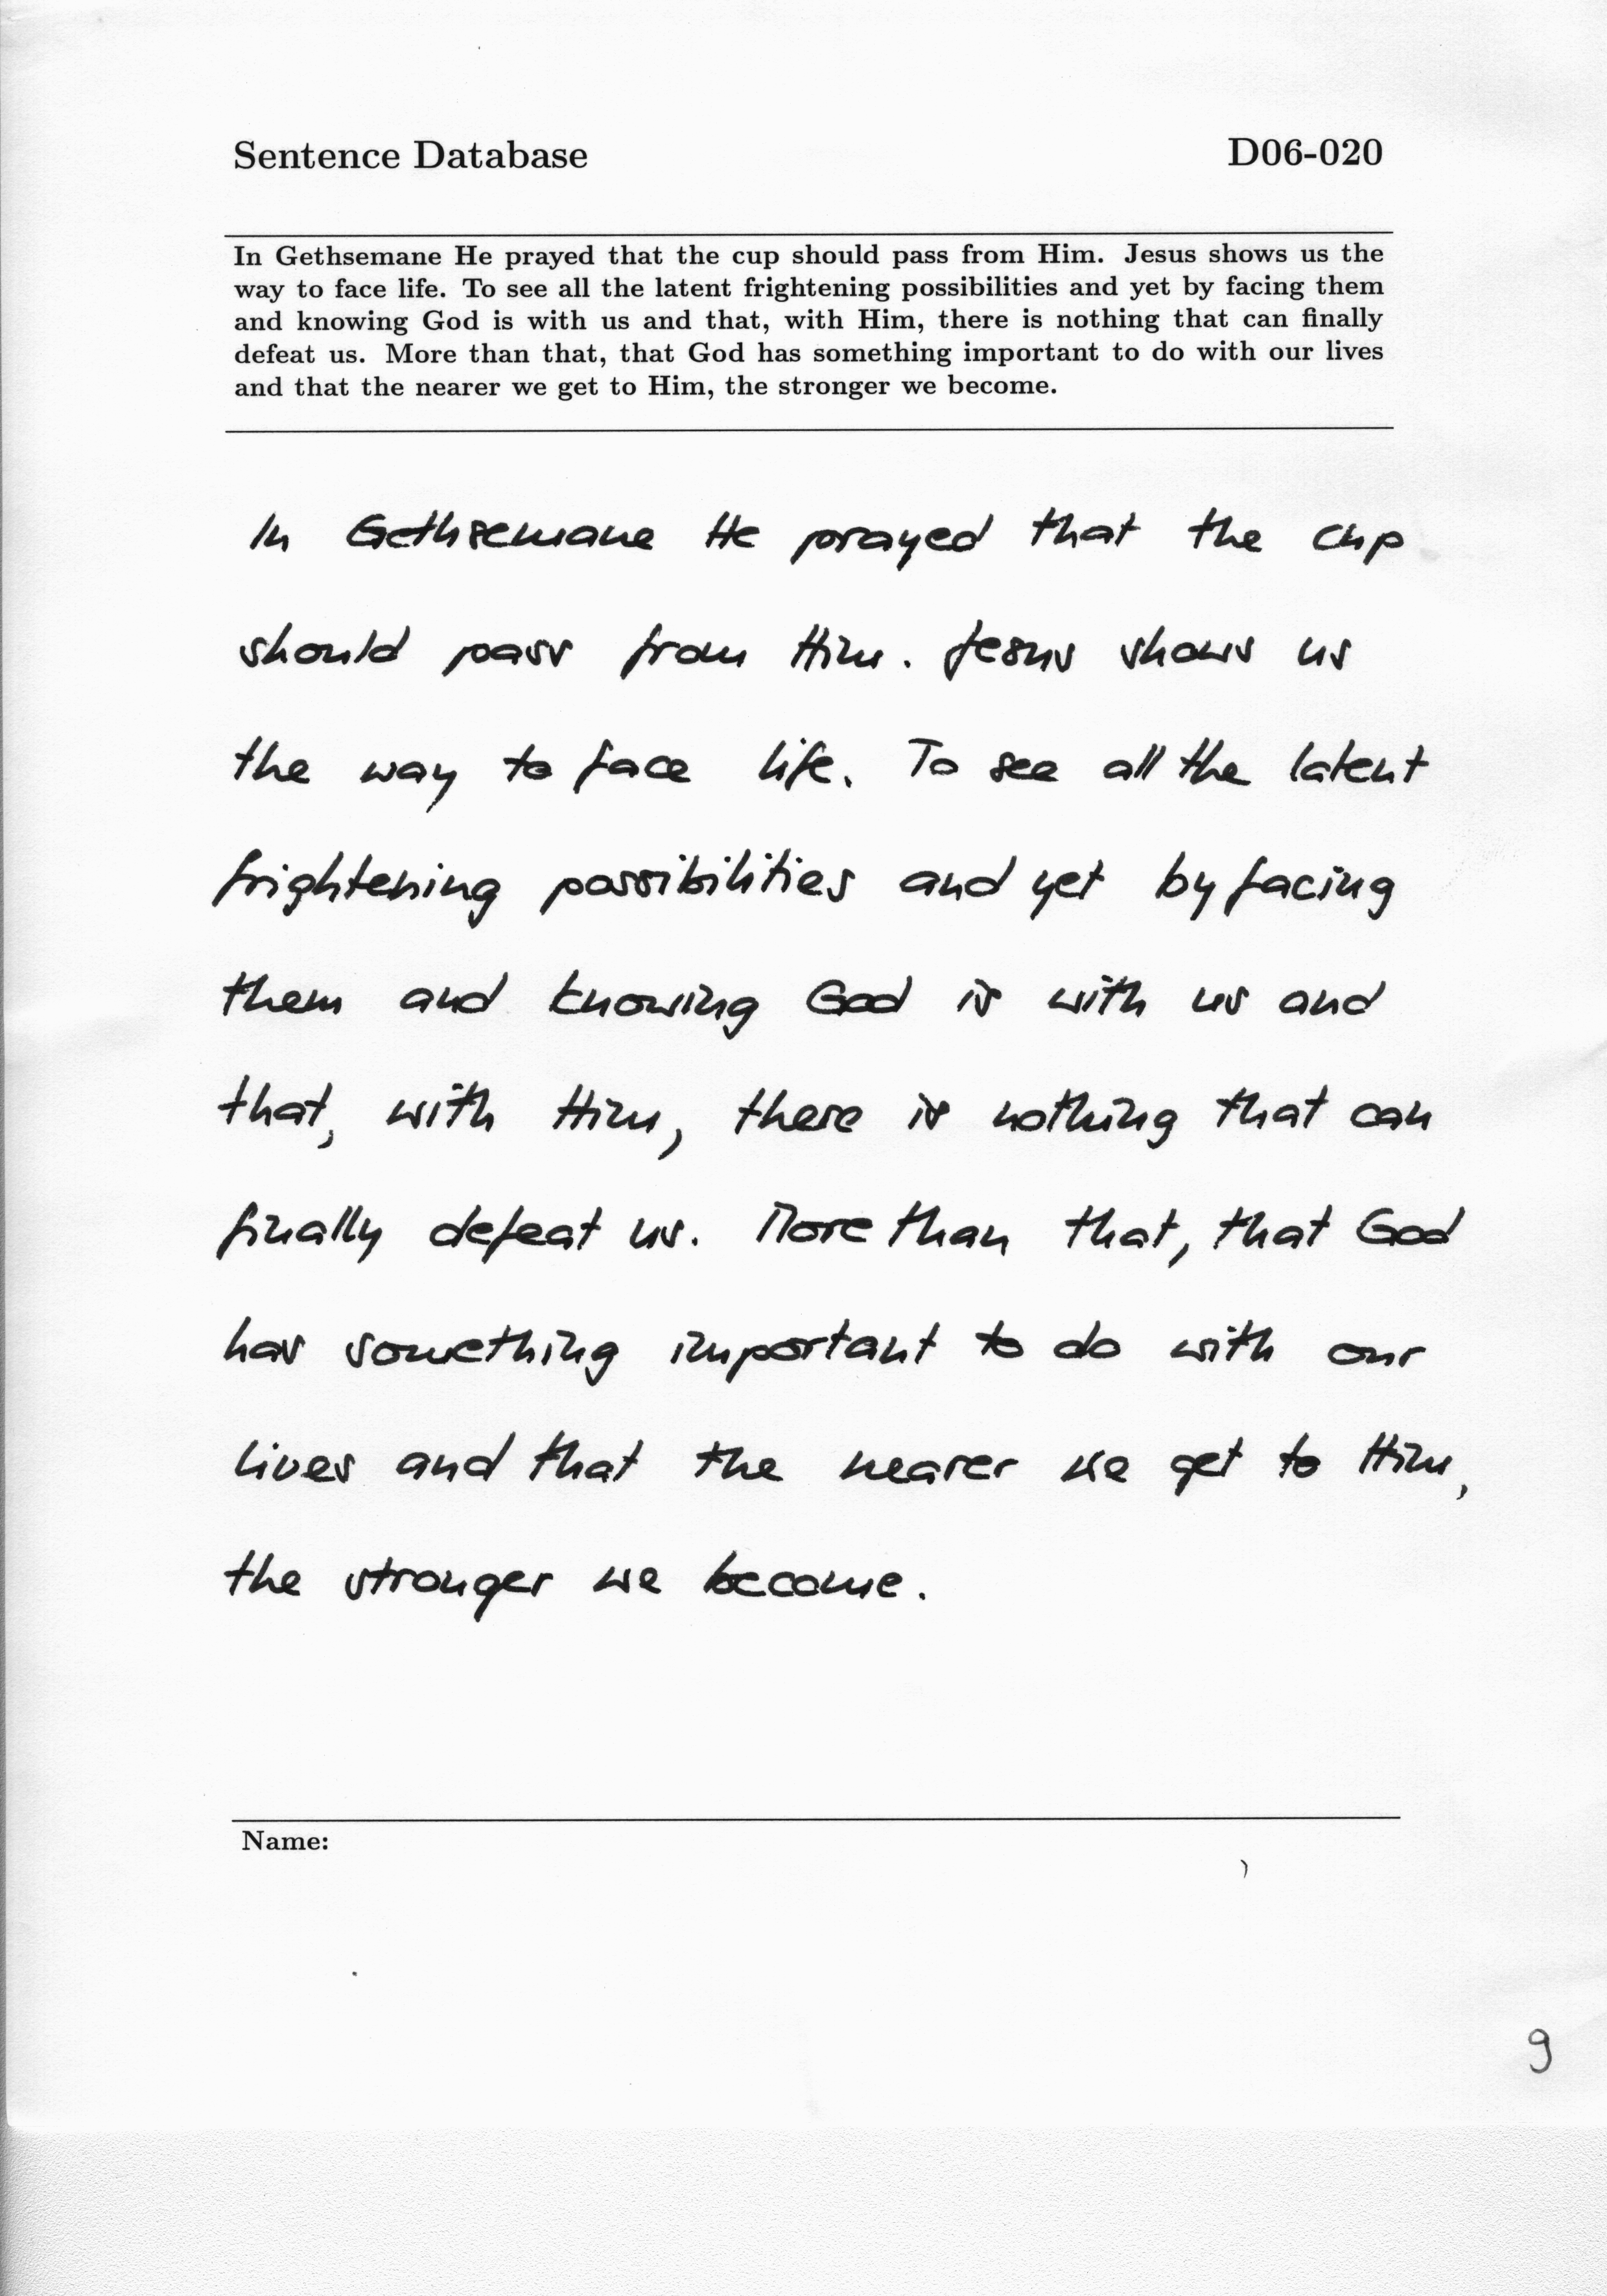 Sentence Database D06-020
In Gethsemane He prayed that the cup should pass from Him. Jesus shows us the
way to face life. To see all the latent frightening possibilities and yet by facing them
and knowing God is with us and that, with Him, there is nothing that can finally
defeat us. More than that, that God has something important to do with our lives
and that the nearer we get to Him, the stronger we become.
In Gethsemane He prayed that the cup
should pass from Him. Jesus shows us
the way to face life. To see all the latent
frightening possibilities and yet by facing
them and knowing God is with us and
that, with Him, there is nothing that can
finally defeat us. More than that, that God
has something important to do with our
lives and that the nearer we get to Him,
the stronger we become.
Name:
9